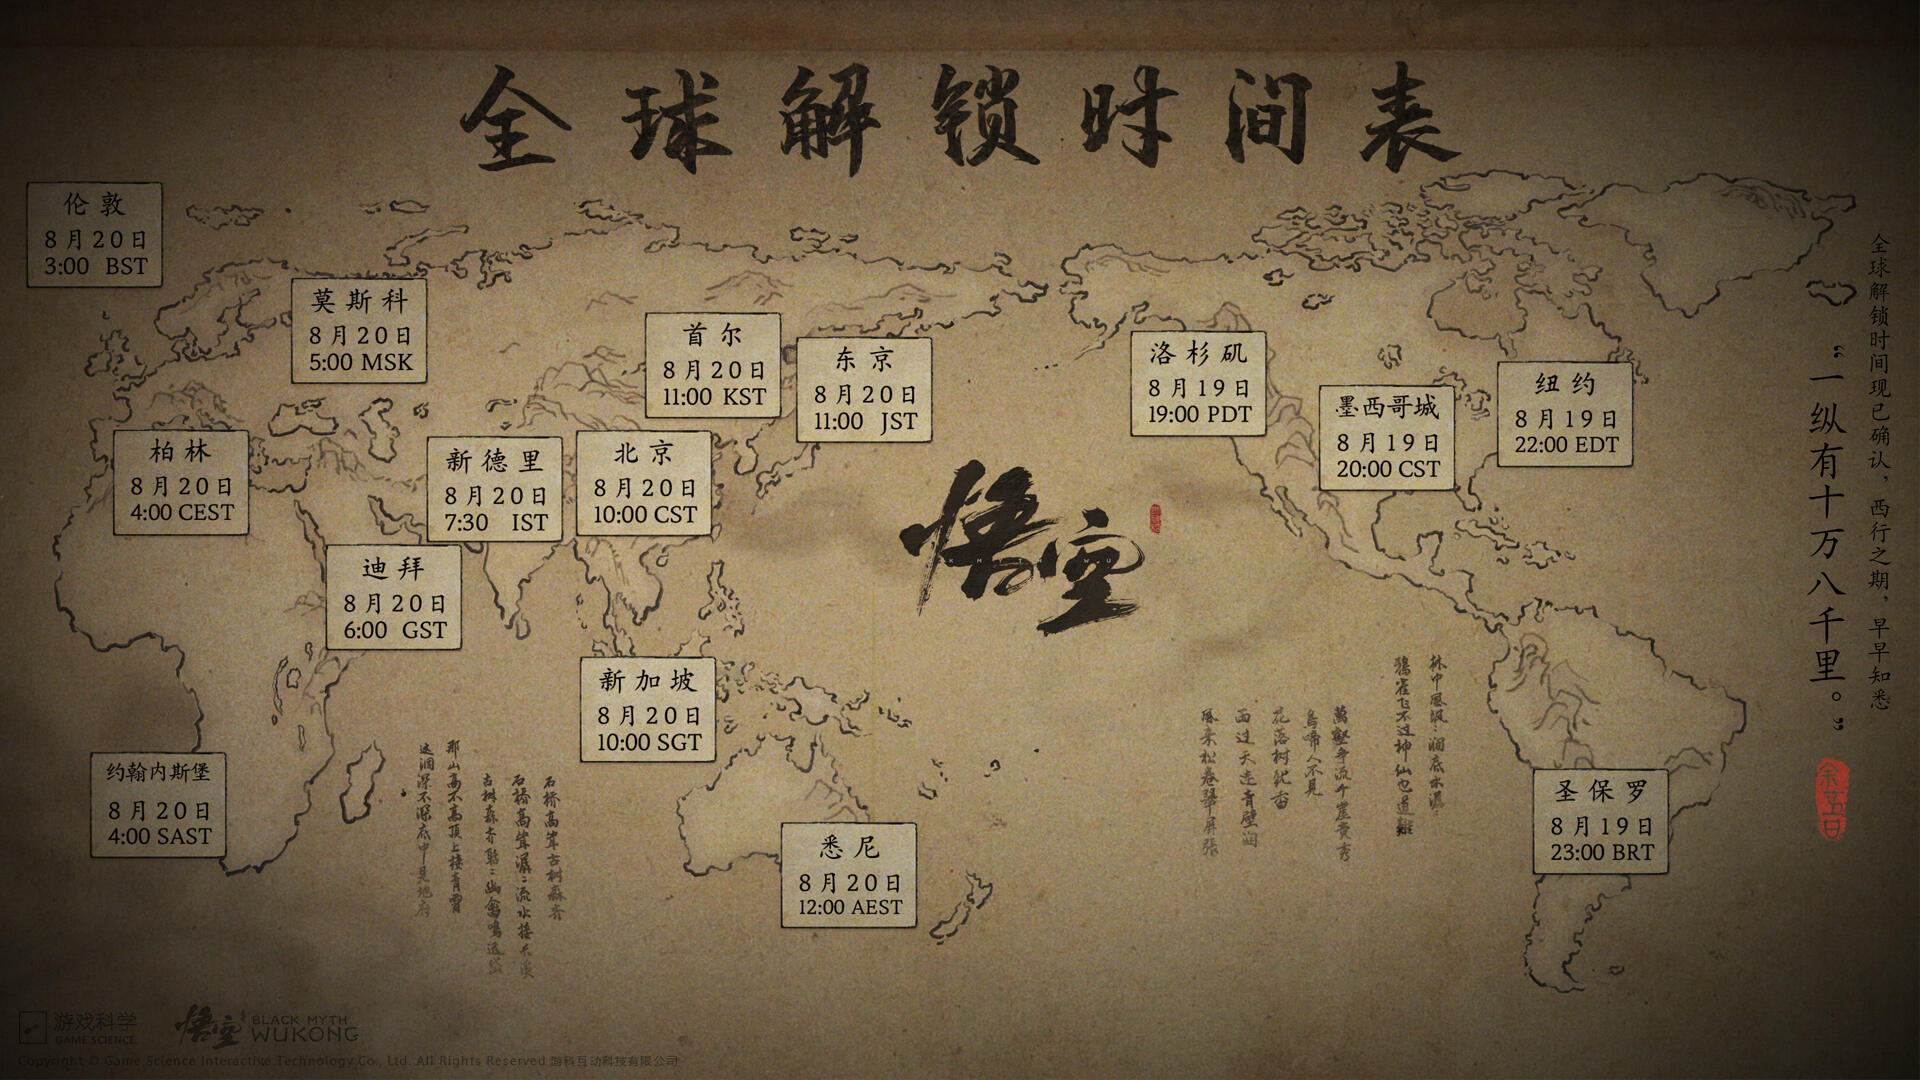 全球解锁时间表
伦敦
8月20日
3:00 BST
莫斯科
8月20日
5:00 MSK
首尔
8月20日
11:00 KST
东京
8月20日
11:00 JST
洛杉矶
8月19日
19:00 PDT
墨西哥城
8月19日
20:00 CST
纽约
8月19日
22:00 EDT
柏林
8月20日
4:00 CEST
新德里
8月20日
7:30 IST
北京
8月20日
10:00 CST
迪拜
8月20日
6:00 GST
新加坡
8月20日
10:00 SGT
约翰内斯堡
8月20日
4:00 SAST
悉尼
8月20日
12:00 AEST
圣保罗
8月19日
23:00 BRT
悟空
全球解锁时间现已确认，西行之期，早早知悉
“一纵有十万八千里。”
那山高不高顶上接青霄
这涧深不深底中见地府
游戏科学
GAME SCIENCE
悟空
BLACK MYTH
WUKONG
Copyright © Game Science Interactive Technology Co., Ltd. All Rights Reserved 游科互动科技有限公司